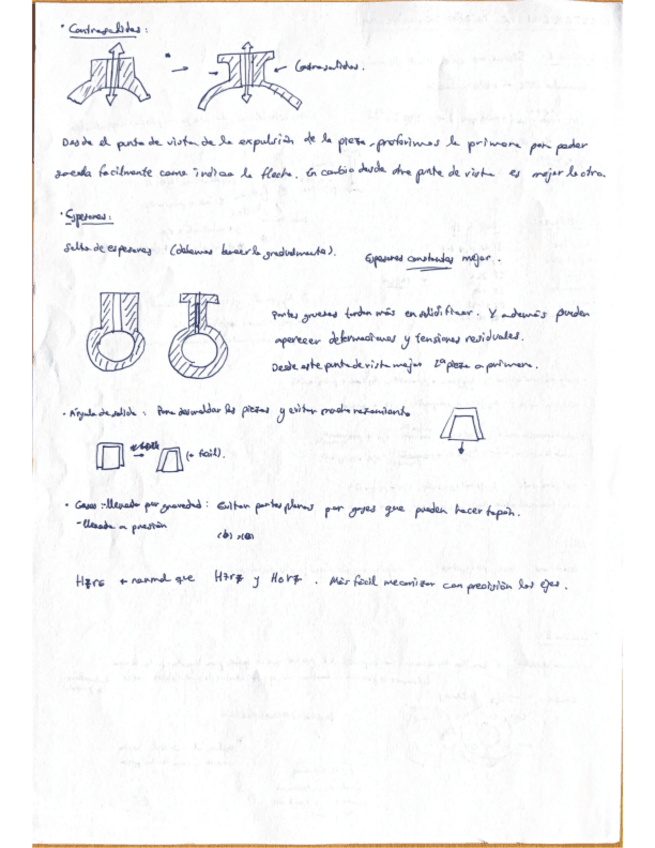 · Contrasalidas:
Contrasalidas.
Desde el punto de vista de la expulsión de la pieza, preferimos la primera para poder
sacarla facilmente como indica la flecha. En cambio desde otro punto de vista es mejor la otra.
· Espesores:
Salto de espesores (debemos hacerlo gradualmente).
Espesores constantes mejor.
Partes gruesas tardan más en solidificar. Y además pueden
aparecer deformaciones y tensiones residuales.
Desde este punto de vista mejor 2ª pieza a primera.
· Ángulo de salida: Para desmoldar las piezas y evitar mucho rozamiento
(+ fácil).
· Gases: -llenado por gravedad: Evitar partes planas por gases que pueden hacer tapón.
-llenado a presión
+ normal que y . Más fácil mecanizar con precisión los ejes.